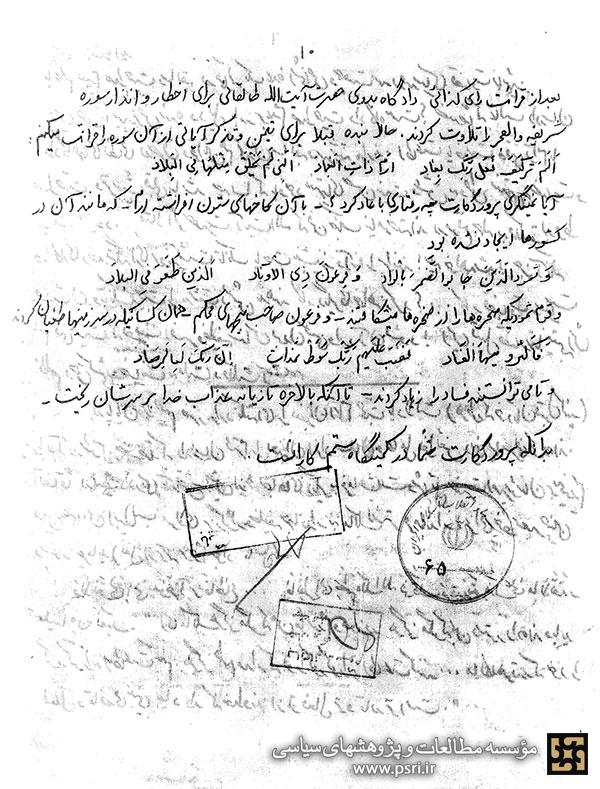 ۱۰
بعد از قرائت رای کذائی دادگاه بدوی حضرت آیت‌الله طالقانی برای اخطار و انذار سوره
شریفه والفجر را تلاوت کردند. حالا بنده قبلا برای تیمن و تذکر آیاتی از آن سوره را قرائت میکنم
اَلَم تَرَ کَیفَ فَعَلَ رَبُّکَ بِعاد اِرَمَ ذاتِ العِماد اَلَّتی لَم یُخلَق مِثلُها فِی البِلاد
آیا نمینگری پرورگارت چه رفتاری با عاد کرد؟ - با آن کاخهای ستون افراشته ارم - که مانند آن در
کشورها ایجاد نشده بود
وَ ثَمودَ الَّذینَ جابوا الصَّخرَ بِالواد وَ فِرعَونَ ذِی الاَوتاد اَلَّذینَ طَغَوا فِی البِلاد
و قوم ثمود که صخره‌ها را از صخره‌ها میشکافتند - و فرعون صاحب میخهای محکم - همان کسانیکه در سرزمینها طغیان کردند
فَاَکثَروا فیهَا الفَساد فَصَبَّ عَلَیهِم رَبُّکَ سَوطَ عَذاب اِنَّ رَبَّکَ لَبِالمِرصاد
و تا می توانستند فساد را زیاد کردند - تا آنکه بالاخره تازیانه عذاب خدا بر سرشان ریخت -
بدانکه پرورگارت حتما در کمینگاه ستم کاران است
۶۵
مؤسسه مطالعات و پژوهشهای سیاسی
www.psri.ir